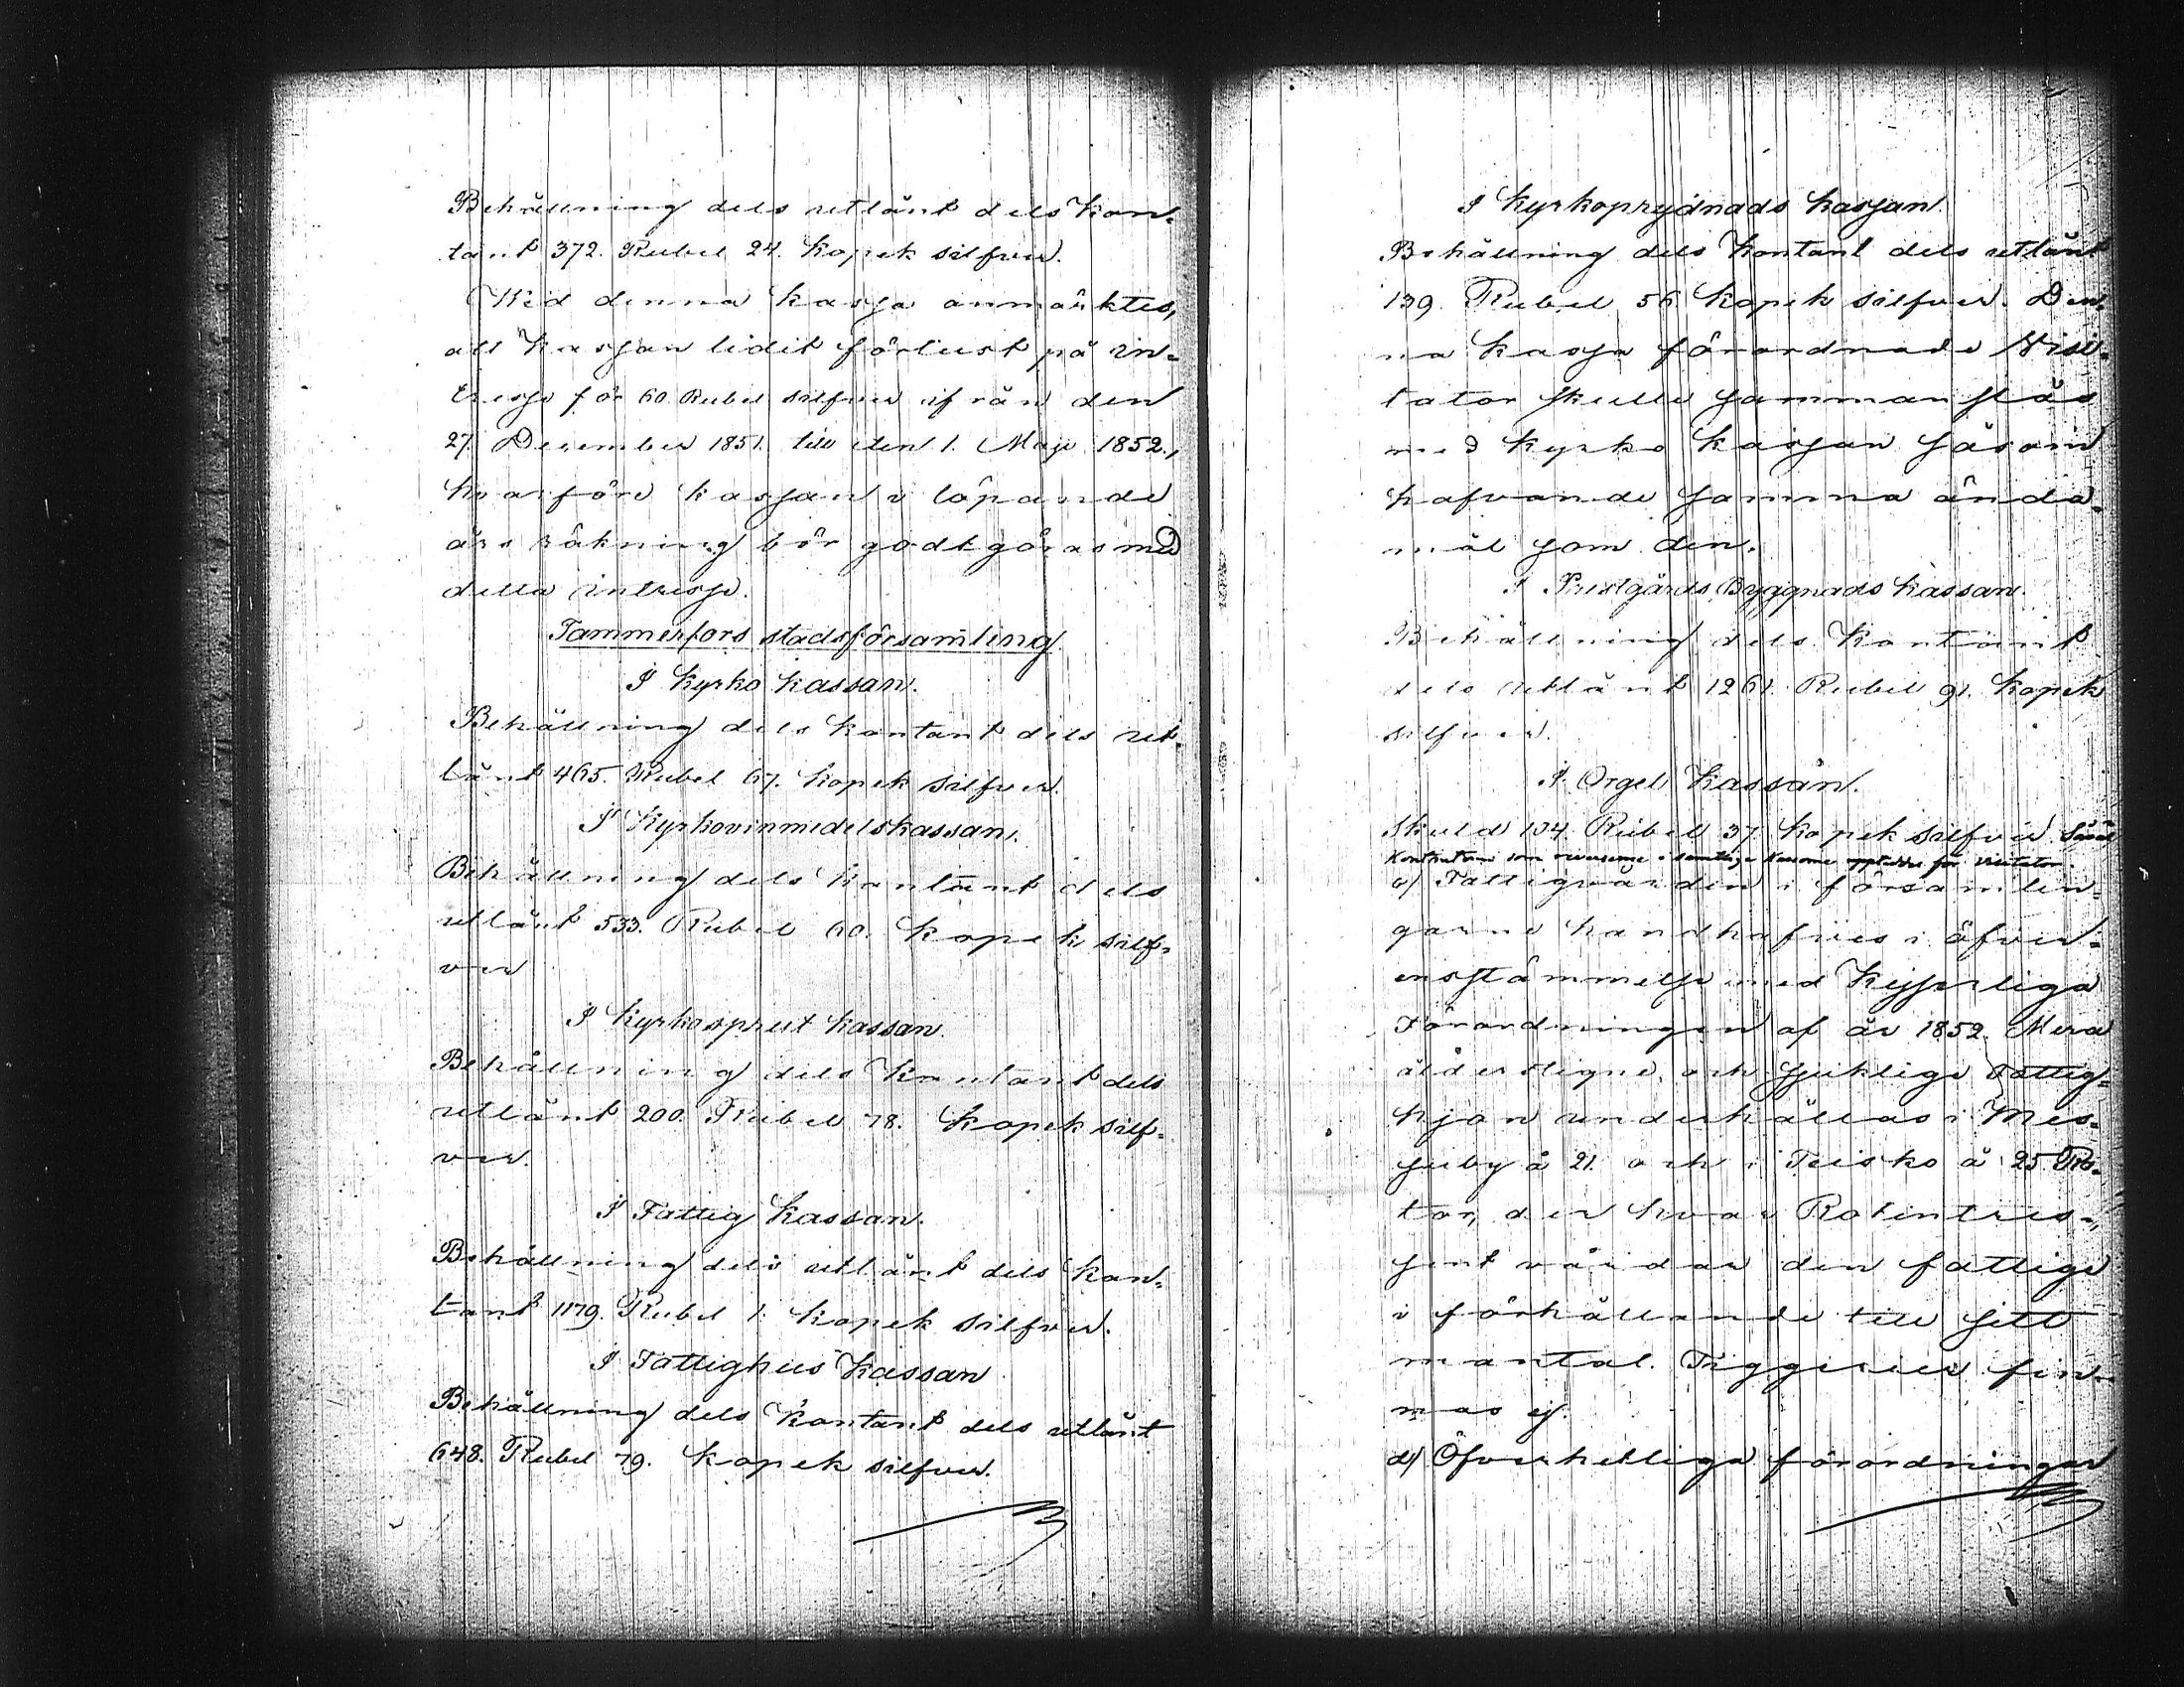 Behållning dels utlånt dels kon-
tant 372. Rubel 24. Kopek silfver.
Wid denna kassa anmärktes,
att kassan lidit förlust på in-
tresse för 60 Rubel silfver ifrån den
27. December 1851. till den 1. Maji 1852.,
hvarföre kassan i löpande
års räkning bör godtgöras med
detta intresse.
Tammerfors stadsförsamling.
I Kyrko kassan.
Behållning dels kontant dels ut-
lånt 465. Rubel 67. Kopek silfver.
I Kyrkovinmedelskassan.
Behållning dels kontant dels
utlånt 533. Rubel 60. Kopek silf-
ver
I Kyrkosprut kassan.
Behållning dels kontant dels
utlånt 200. Rubel 78. Kopek silf-
ver.
I Fattig kassan.
Behållning dels utlånt dels kon-
tant 1179. Rubel 1. Kopek silfver.
I Fattighus kassan
Behållning dels kontant dels utlånt
648. Rubel 79. Kopek silfver.
I Kyrkoprydnads kassan.
Behållning dels kontant dels utlånt
139. Rubel 56 Kopek silfver. Den-
na kassa förordnade Visi-
tator skulle sammanslås
med kyrko kassan såsom
hafvande samma ända-
mål som den.
I Prestgårds Byggnads kassan.
Behållning dels kontant
dels utlånt 1261. Rubel 91. Kopek
silfver.
I Orgel kassan.
Skuld 104. Rubel 37. Kopek silfver. Såväl
Kontanterne som reverserne i samtlige kassorne uppteddes för visitator.
c) Fattigvården i församlin-
garne handhafves i öfver-
ensstämmelse med Kejserliga
Förordningen af år 1852. Mera
ålderstigne och sjuklige Fattig-
hjon underhållas i Mes-
suby å 21. och i Teisko å 25 Ro-
tar, der hvar Rotentres-
sent vårdar den fattige
i förhållande till sitt
mantal. Tiggerier fin-
nas ej.
d) Öfverhetliga förordningar